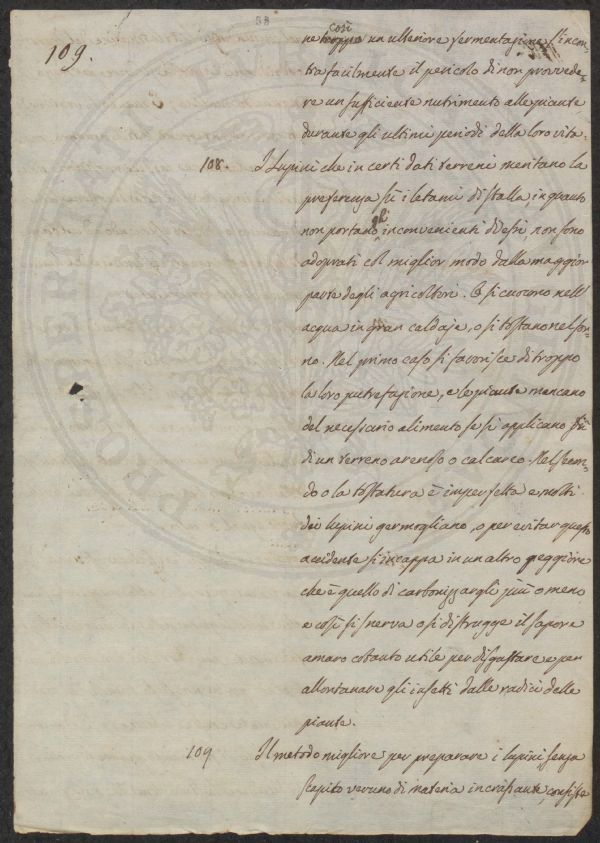 109.
così
ne troppo un ulteriore fermentazione s'incon-
tra facilmente il pericolo di non provvede-
re un sufficiente nutrimento alle piante
durante gli ultimi periodi della loro vita.
108. I Lupini che in certi dati terreni meritano la
preferenza su i letami di stalla in quanto
non portano gli inconvenienti di essi non sono
adoprati col miglior modo dalla maggior
parte degli agricoltori. O si cuocono nell'
acqua in gran caldaje, o si tostano nel for-
no. Nel primo caso si favorisce di troppo
la loro putrefazione, e le piante mancano
del necessario alimento se si applicano su
di un terreno arenoso o calcareo. Nel secon-
do o la tostatura è imperfetta e molti
dei lupini germogliano, o per evitar questo
accidente s'incappa in un altro peggiore
che è quello di carbonizzargli più o meno
e così si snerva o si distrugge il sapore
amaro cotanto utile per disgustare e per
allontanare gli insetti dalle radici delle
piante.
109 Il metodo migliore per preparare i lupini senza
scapito veruno di materia incrassante, consiste